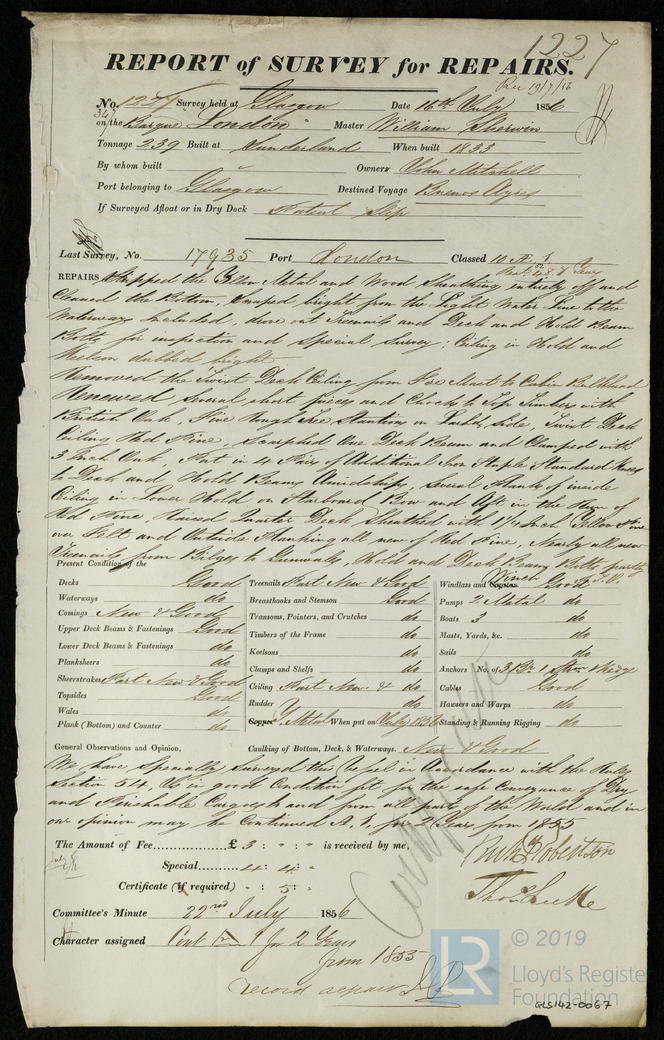 1227
REPORT of SURVEY for REPAIRS.
Rec 19/7/56
No. 1227 Survey held at Glasgow Date 16th July 1856
347
on the Barque London Master William Sherwin
Tonnage 239 Built at Sunderland When built 1833
By whom built Owner John Mitchell
Port belonging to Glasgow Destined Voyage Buenos Ayres
If Surveyed Afloat or in Dry Dock Patent Slip
Last Survey, No. 17935 Port London Classed 10 A. 1
REPAIRS Stripped the Yellow Metal and Wood Sheathing entirely off and
Cleaned the Bottom, Scraped bright from the Light Water Line to the
Waterways Included, drove out Treenails and Deck and Hold Beam
Bolts for inspection and Special Survey; Ceiling in Hold and
Keelson dubbed bright
Removed the Twixt Deck Ceiling from Fore Mast to Cabin Bulkhead
Renewed several short pieces and Chocks to Top Timber with
British Oak, Five Rough Tree Stantions on Larbd. Side, Twixt Deck
Ceiling Red Pine, Scarphed One Deck Beam and Clamped with
3 Inch Oak, Put in 4 Pairs of Additional Iron Staple Standard Knees
to Deck and Hold Beams Amidships, several Planks of inside
Ceiling in Lower Hold on Starboard Bow and Aft in the Run of
Red Pine, Raised Quarter Deck Sheathed with 1 1/4 Inch Yellow Pine
over Felt and Outside Planking all new of Red Pine, Nearly all new
Treenails from Bilges to Gunwale, Hold and Deck Beam Bolts partly
Present Condition of the
Decks Good
Waterways do
Comings New & Good
Upper Deck Beams & Fastenings Good
Lower Deck Beams & Fastenings do
Planksheers do
Sheerstrakes Part New & Good
Topsides Good
Wales do
Plank (Bottom) and Counter do
Treenails Part New & Good
Breasthooks and Stemson Good
Transoms, Pointers, and Crutches do
Timbers of the Frame do
Keelsons do
Clamps and Shelfs do
Ceiling Part New & do
Rudder do
Copper Y. Metal When put on July 1856
Windlass and Capstan Winch Good
Pumps 2 Metal do
Boats 3 do
Masts, Yards, &c. do
Sails do
Anchors No. of 3 Br. 1 Strm Kedge
Cables Good
Hawsers and Warps do
Standing & Running Rigging do
General Observations and Opinion, Caulking of Bottom, Deck, & Waterways. New & Good
We have Specially Surveyed this Vessel in Accordance with the Rules
Section 54, Is in good Condition fit for the safe Conveyance of Dry
and Perishable Cargoes to and from all parts of the World and in
our opinion may be Continued A. 1. for 2 Years from 1855
The Amount of Fee £ 3 : " : " is received by me,
Special 4 : 4 : "
Certificate (if required) " : 5 : "
Robertson
Thos.
Committee's Minute 22nd July 1856
Character assigned Cont A 1 for 2 Years
from 1855
record repairs
LR © 2019
Lloyd's Register
Foundation
GLS142-0067